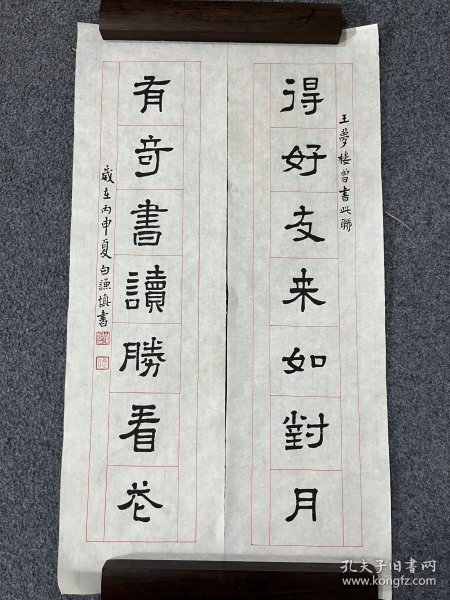 得好友来如對月
王夢樓曾書此聯
有奇書讀勝看花
歲在丙申夏白謙慎書
孔夫子旧书网
www.kongfz.com